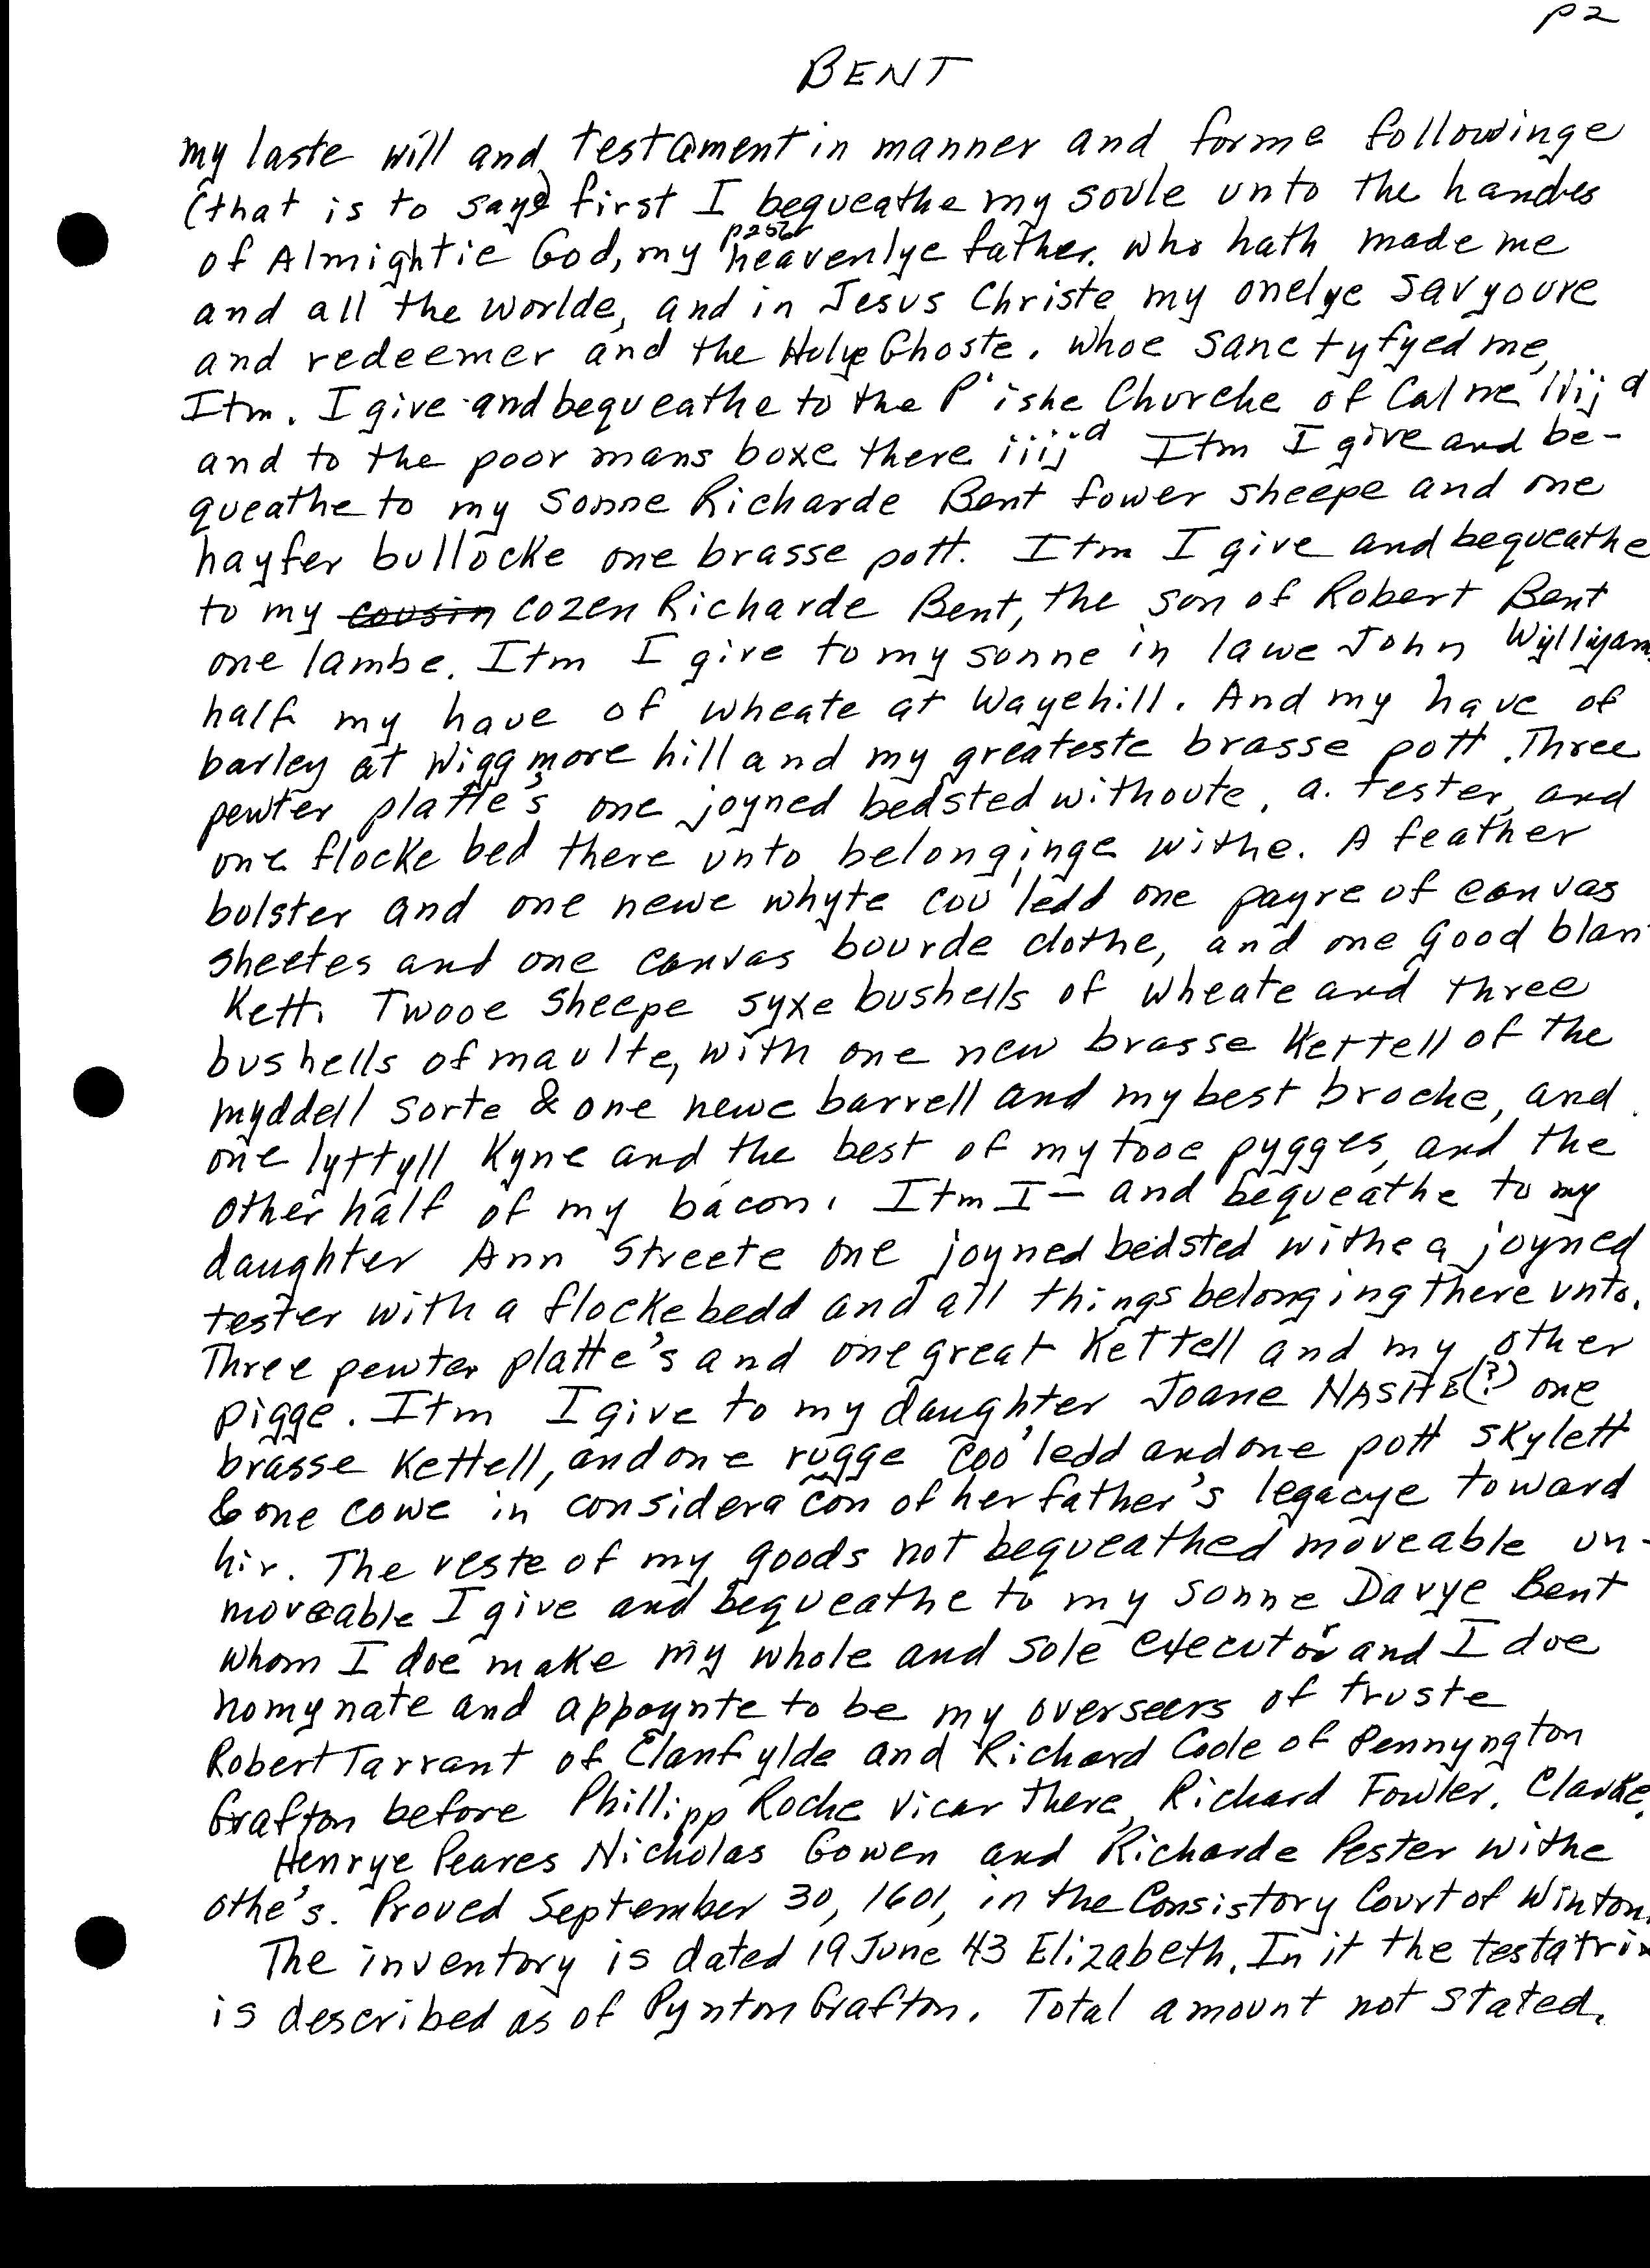 p2
BENT
my laste will and testament in manner and forme followinge
(that is to saye) first I bequeathe my soule unto the handes
of Almightie God, my heavenlye father. Who hath made me
p256
and all the worlde, and in Jesus Christe my onelye Savyoure
and redeemer and the Holye Ghoste. Whoe sanctyfyed me,
Itm. I give and bequeathe to the P'ishe Churche of Calne iiij d
and to the poor mans boxe there iiij d Itm I give and be-
queathe to my sonne Richarde Bent fower sheepe and one
hayfer bullocke one brasse pott. Itm I give and bequeathe
to my cousin cozen Richarde Bent, the son of Robert Bent
one lambe. Itm I give to my sonne in lawe John Wylliyam
half my have of wheate at Wayehill. And my have of
barley at Wiggmore hill and my greateste brasse pott. Three
pewter platte's one joyned bedsted withoute. a. tester, and
one flocke bed there unto belonginge withe. A feather
bolster and one newe whyte cou'ledd one payre of canvas
sheetes and one canvas bourde clothe, and one good blan-
kett. Twooe sheepe syxe bushells of wheate and three
bushells of maulte, with one new brasse kettell of the
myddell sorte & one newe barrell and my best broche, and.
one lyttyll kyne and the best of my tooe pygges, and the
other half of my bacon. Itm I — and bequeathe to my
daughter Ann Streete one joyned bedsted withe a joyned
tester with a flocke bedd and all things belonging there unto.
Three pewter platte's and one great kettell and my other
pigge. Itm I give to my daughter Joane NASHE(?) one
brasse kettell, and one rugge coo'ledd and one pott skylett
& one cowe in consideracon of her father's legacye toward
hir. The reste of my goods not bequeathed moveable un-
moveable I give and bequeathe to my sonne Davye Bent
whom I doe make my whole and sole executor and I doe
nomynate and appoynte to be my overseers of truste
Robert Tarrant of Clanfylde and Richard Cole of Pennyngton
Grafton before Phillipp Roche vicar there, Richard Fowler. Clarke.
Henrye Peares Nicholas Gowen and Richarde Pester withe
othe's. Proved September 30, 1601, in the Consistory Court of Winton.
The inventory is dated 19 June 43 Elizabeth. In it the testatrix
is described as of Pynton Grafton. Total amount not stated.